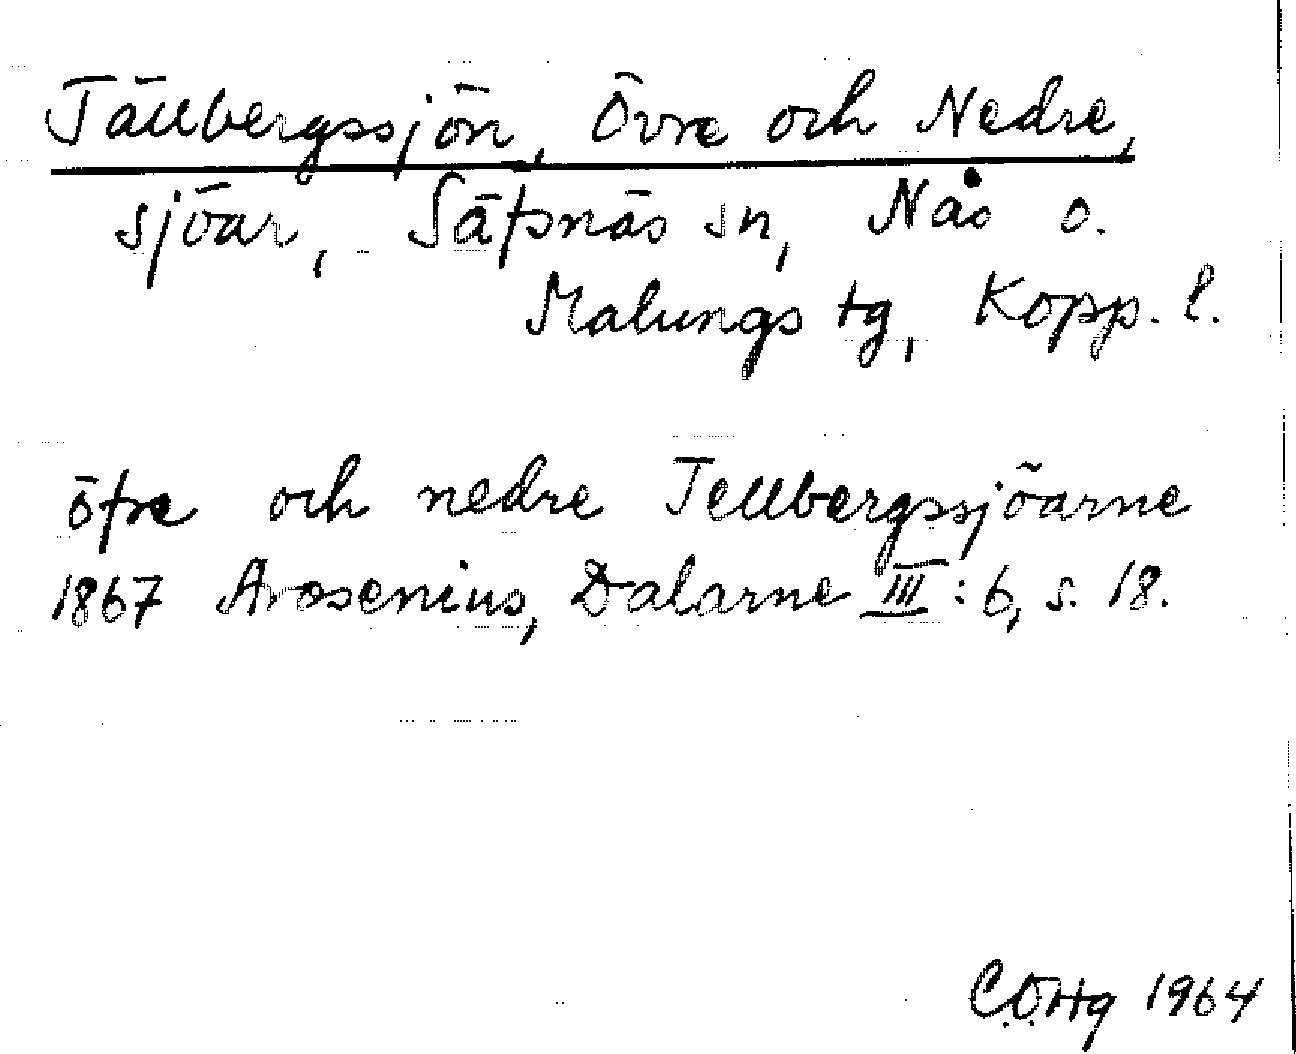 Tällbergssjön, Övre och Nedre,
sjöar, Säfsnäs sn, Nås o.
Malungs tg, Kopp. l.
öfre och nedre Tellbergssjöarne
1867 Arosenius, Dalarne III: 6, s. 18.
C.O.Hg 1964